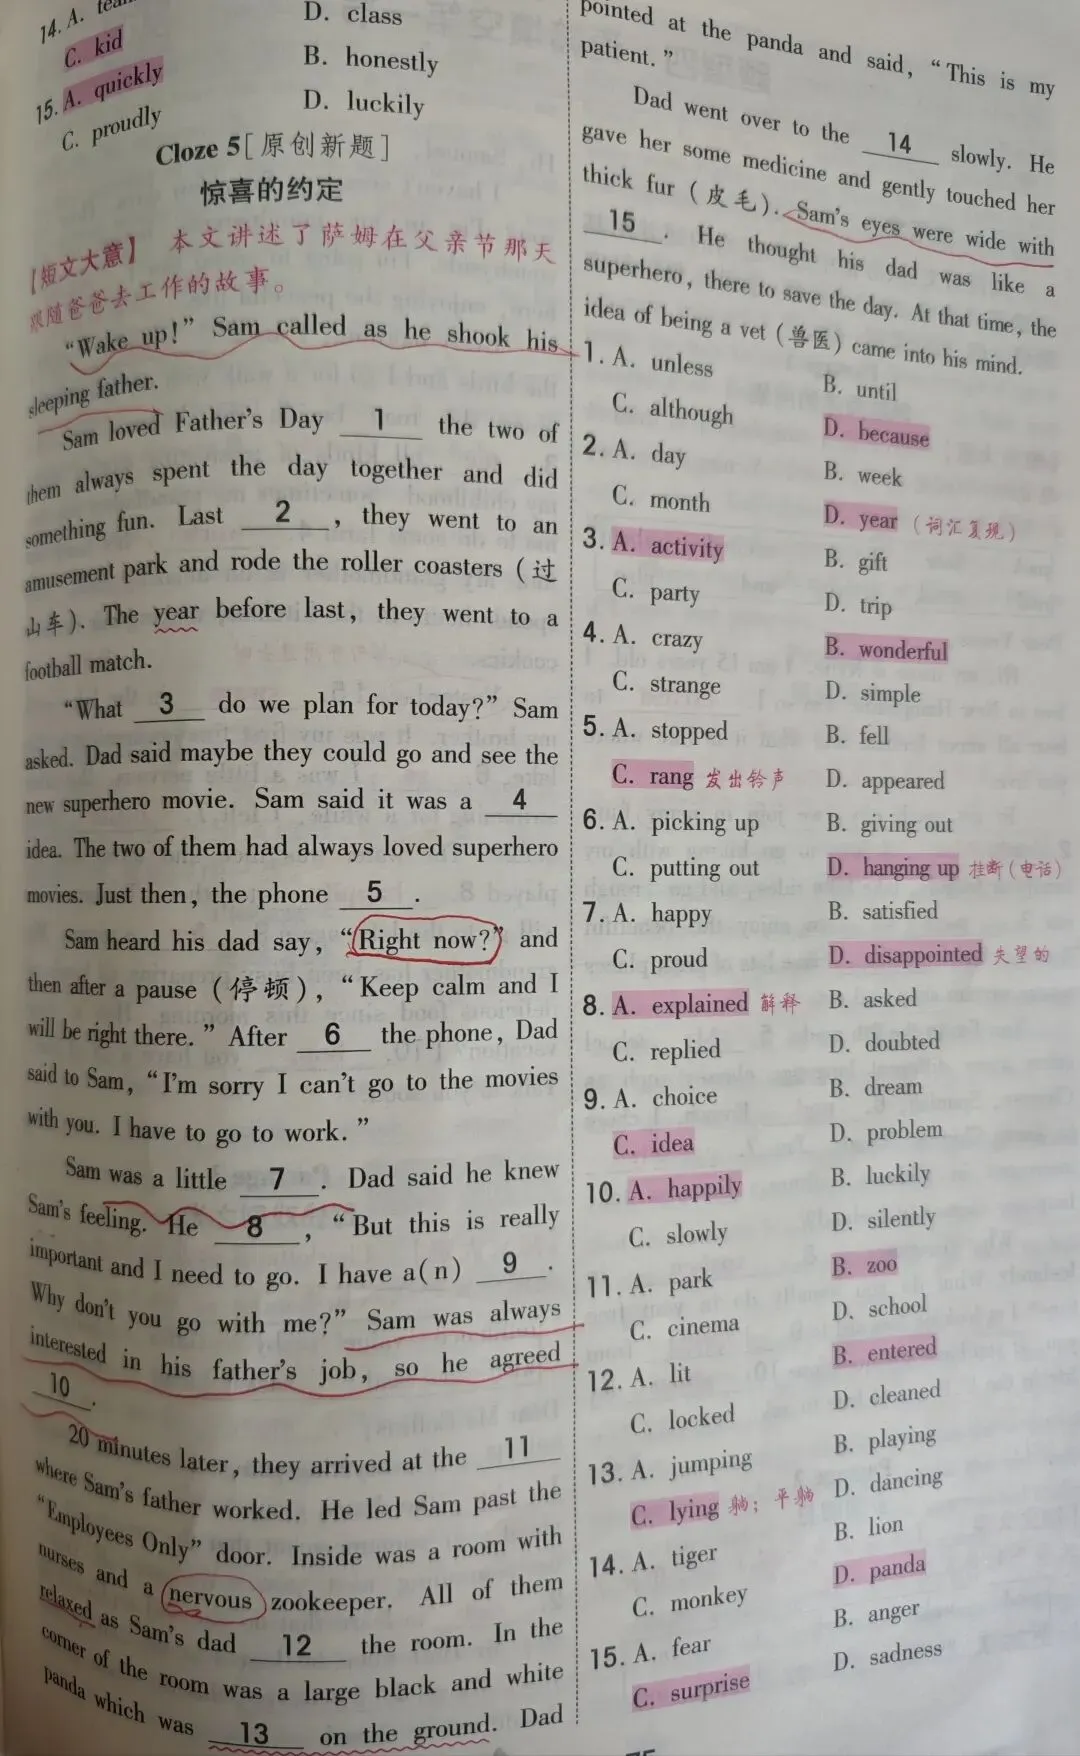 14. A.
D. class
C. kid
B. honestly
15. A. quickly
D. luckily
C. proudly
Cloze 5[原创新题]
惊喜的约定
【短文大意】 本文讲述了萨姆在父亲节那天
跟随爸爸去工作的故事。
“Wake up!” Sam called as he shook his
sleeping father.
Sam loved Father’s Day 1 the two of
them always spent the day together and did
something fun. Last 2 , they went to an
amusement park and rode the roller coasters (过
山车). The year before last, they went to a
football match.
“What 3 do we plan for today?” Sam
asked. Dad said maybe they could go and see the
new superhero movie. Sam said it was a 4
idea. The two of them had always loved superhero
movies. Just then, the phone 5 .
Sam heard his dad say, “Right now?” and
then after a pause (停顿), “Keep calm and I
will be right there.” After 6 the phone, Dad
said to Sam, “I’m sorry I can’t go to the movies
with you. I have to go to work.”
Sam was a little 7 . Dad said he knew
Sam’s feeling. He 8 , “But this is really
important and I need to go. I have a(n) 9 .
Why don’t you go with me?” Sam was always
interested in his father’s job, so he agreed
10 .
20 minutes later, they arrived at the 11
where Sam’s father worked. He led Sam past the
“Employees Only” door. Inside was a room with
nurses and a nervous zookeeper. All of them
relaxed as Sam’s dad 12 the room. In the
corner of the room was a large black and white
panda which was 13 on the ground. Dad
pointed at the panda and said, “This is my
patient.”
Dad went over to the 14 slowly. He
gave her some medicine and gently touched her
thick fur (皮毛). Sam’s eyes were wide with
15 . He thought his dad was like a
superhero, there to save the day. At that time, the
idea of being a vet (兽医) came into his mind.
1. A. unless
B. until
C. although
D. because
2. A. day
B. week
C. month
D. year (词汇复现)
3. A. activity
B. gift
C. party
D. trip
4. A. crazy
B. wonderful
C. strange
D. simple
5. A. stopped
B. fell
C. rang 发出铃声
D. appeared
6. A. picking up
B. giving out
C. putting out
D. hanging up 挂断(电话)
7. A. happy
B. satisfied
C. proud
D. disappointed 失望的
8. A. explained 解释
B. asked
C. replied
D. doubted
9. A. choice
B. dream
C. idea
D. problem
10. A. happily
B. luckily
C. slowly
D. silently
11. A. park
B. zoo
C. cinema
D. school
12. A. lit
B. entered
C. locked
D. cleaned
13. A. jumping
B. playing
C. lying 躺；平躺
D. dancing
14. A. tiger
B. lion
C. monkey
D. panda
15. A. fear
B. anger
C. surprise
D. sadness